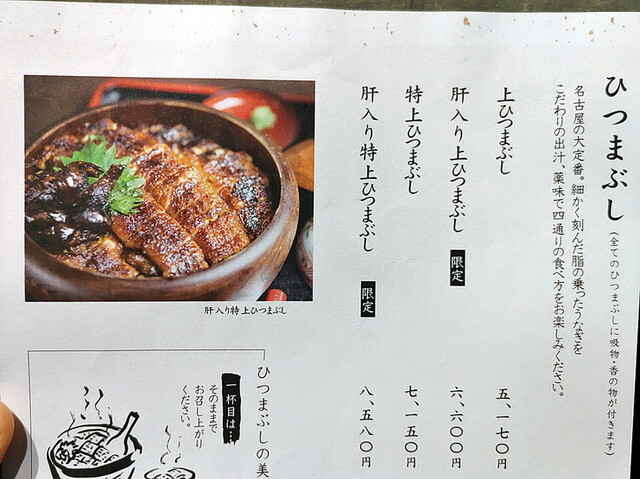 ひつまぶし（全てのひつまぶしに吸物・香の物が付きます）
名古屋の大定番。細かく刻んだ脂の乗ったうなぎを
こだわりの出汁、薬味で四通りの食べ方をお楽しみください。
上ひつまぶし 五、一七〇円
肝入り上ひつまぶし 限定 六、六〇〇円
特上ひつまぶし 七、一五〇円
肝入り特上ひつまぶし 限定 八、五八〇円
肝入り特上ひつまぶし
ひつまぶしの美
一杯目は…
そのままで
お召し上がり
ください。